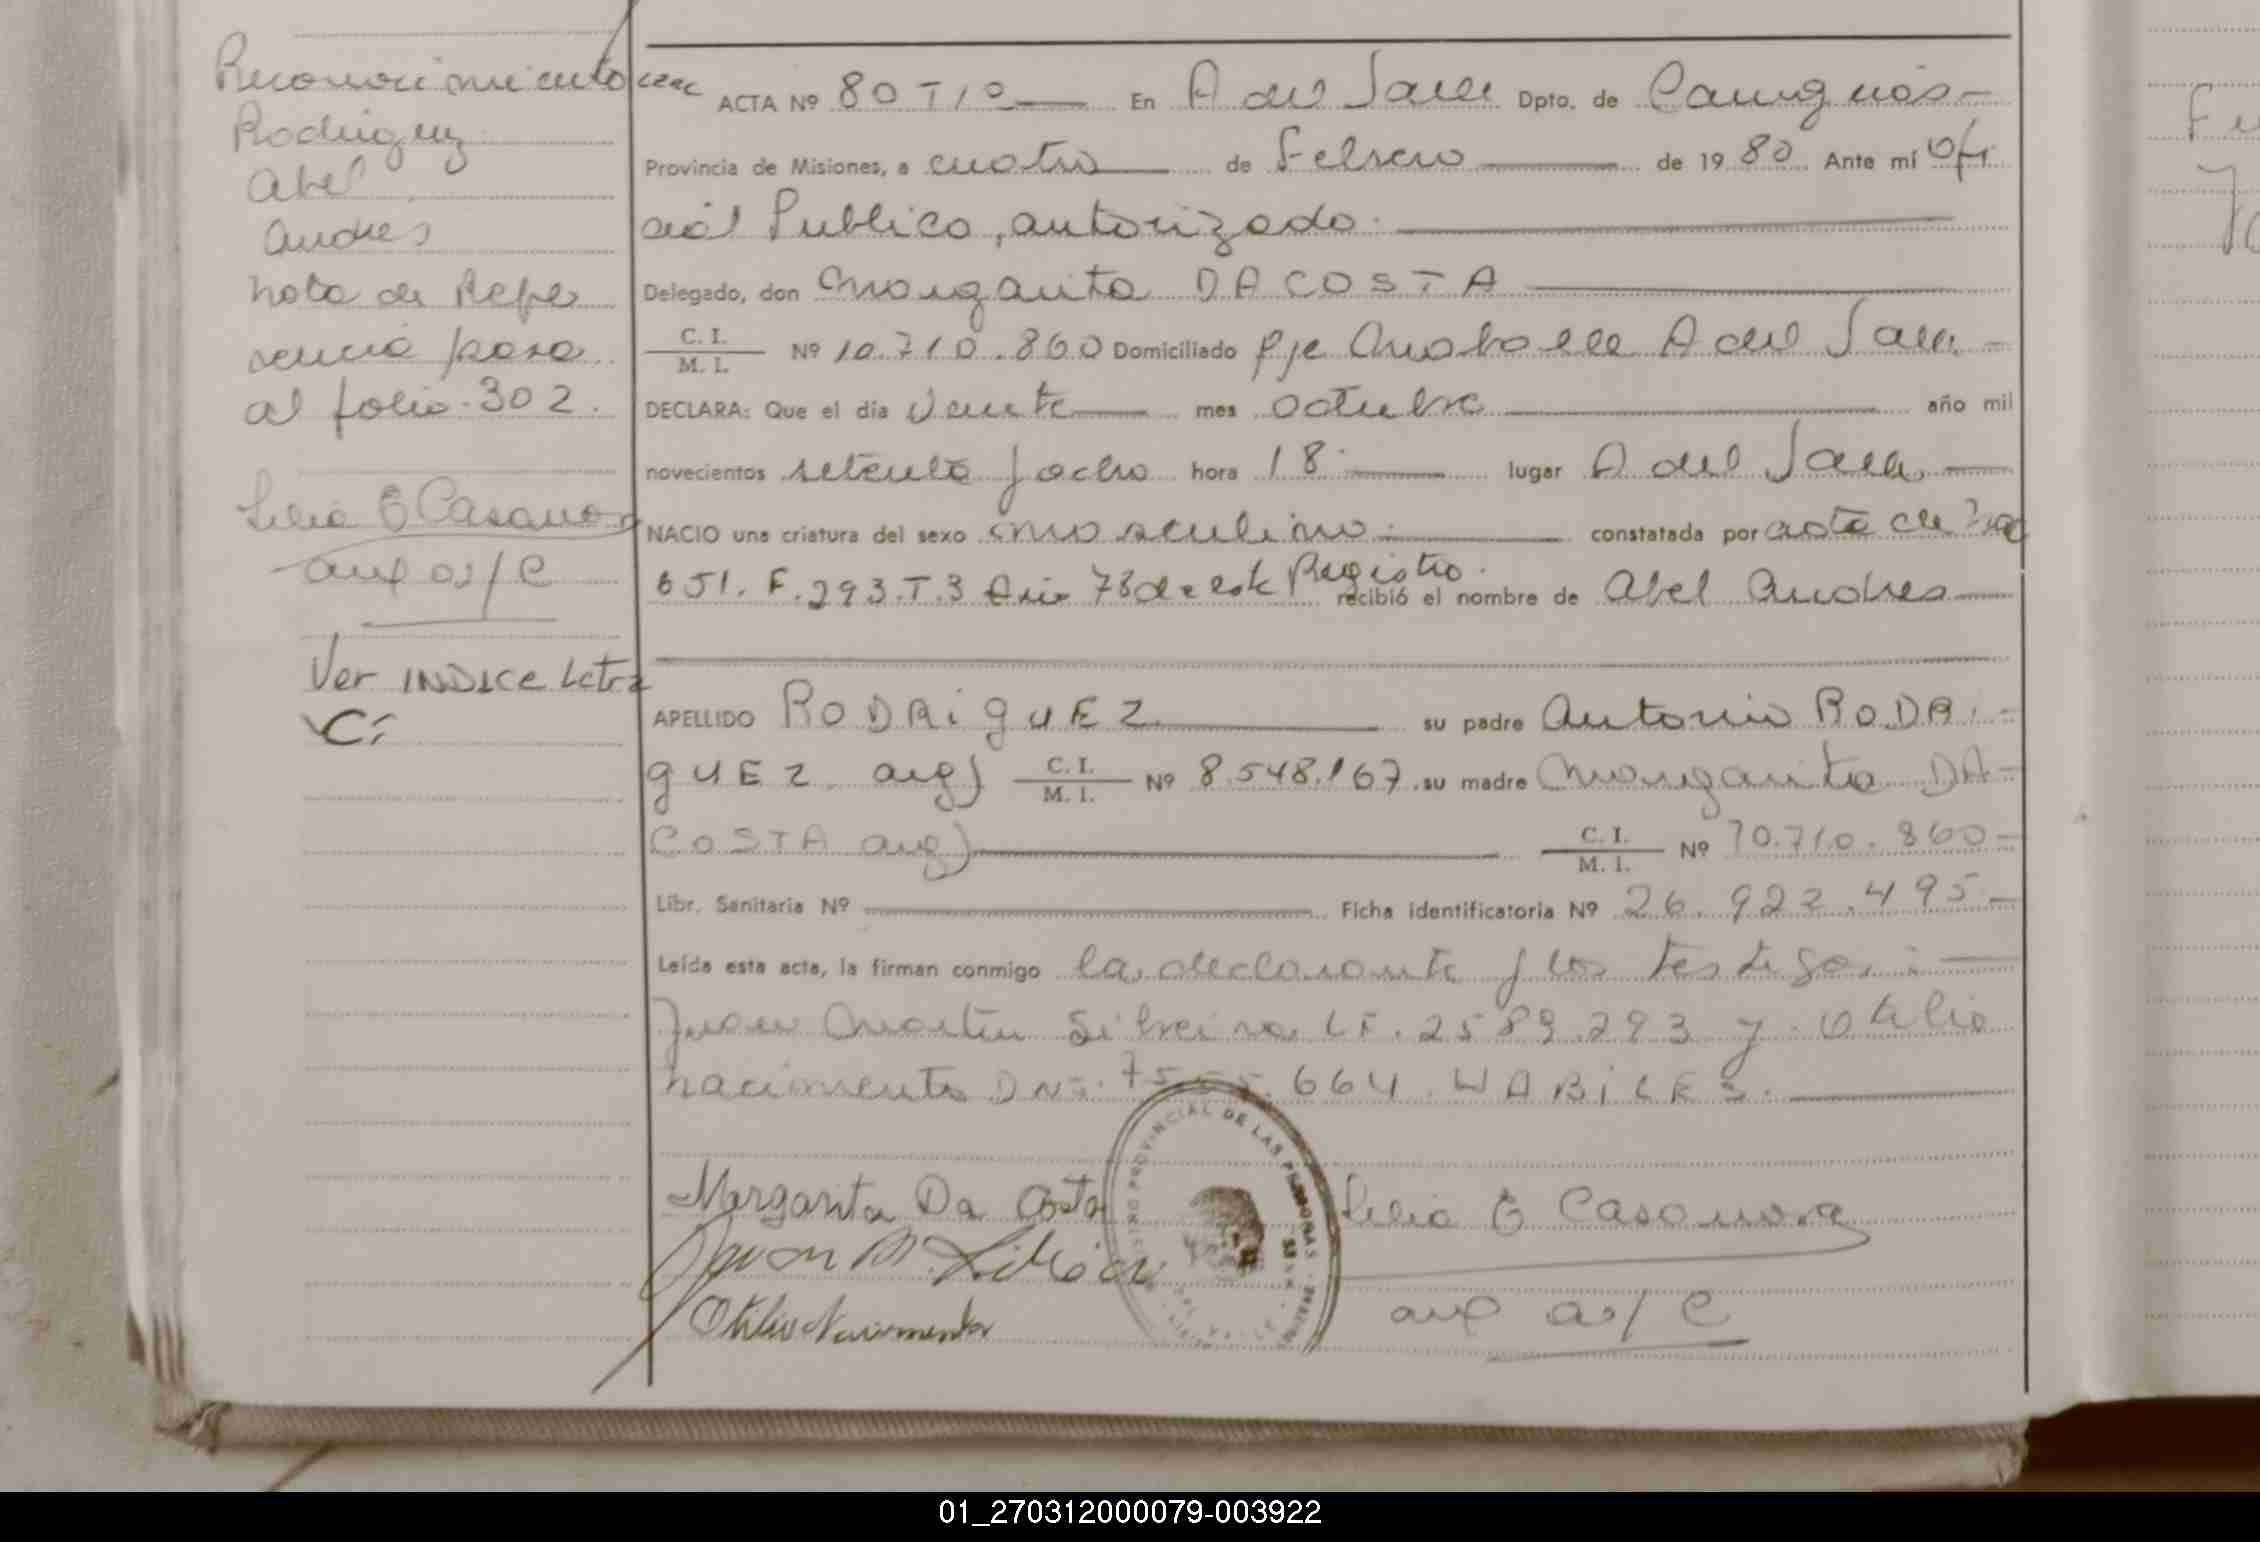 Reconocimiento
Rodriguez
Abel
Andres
nota de Refe
rencia pasa
al folio 302.
Lilia E Casanova
aux as/C
Ver INDICE Letra
C;
ACTA Nº 80 T1º En A del Valle Dpto. de Cainguás
Provincia de Misiones, a cuatro de Febrero de 1980 Ante mí Ofi
cial Publico, autorizado.
Delegado, don Margarita DA COSTA
C. I. / M. I. Nº 10.710.860 Domiciliado Pje A del Valle
DECLARA: Que el día veinte mes octubre año mil
novecientos setenta y ocho hora 18 lugar A del Valle
NACIO una criatura del sexo masculino constatada por acta de nac
651. F. 293. T. 3 Año 78 de este Registro. recibió el nombre de Abel Andres
APELLIDO RODRIGUEZ su padre Antonio RODRI
GUEZ arg) C. I. / M. I. Nº 8.548.167 su madre Margarita DA
COSTA arg) C. I. / M. I. Nº 10.710.860
Libr. Sanitaria Nº Ficha identificatoria Nº 26.922.495
Leída esta acta, la firman conmigo la declarante y los testigos:
Juan Martin Silveira LE. 2589.293 y Otilio
nacimento DNI. 664. HABILES.
PROVINCIAL DE LAS PERSONAS
Margarita Da Costa
Juan M.
Otilio Nacimento
Lilia E Casanova
aux as/C
01_270312000079-003922